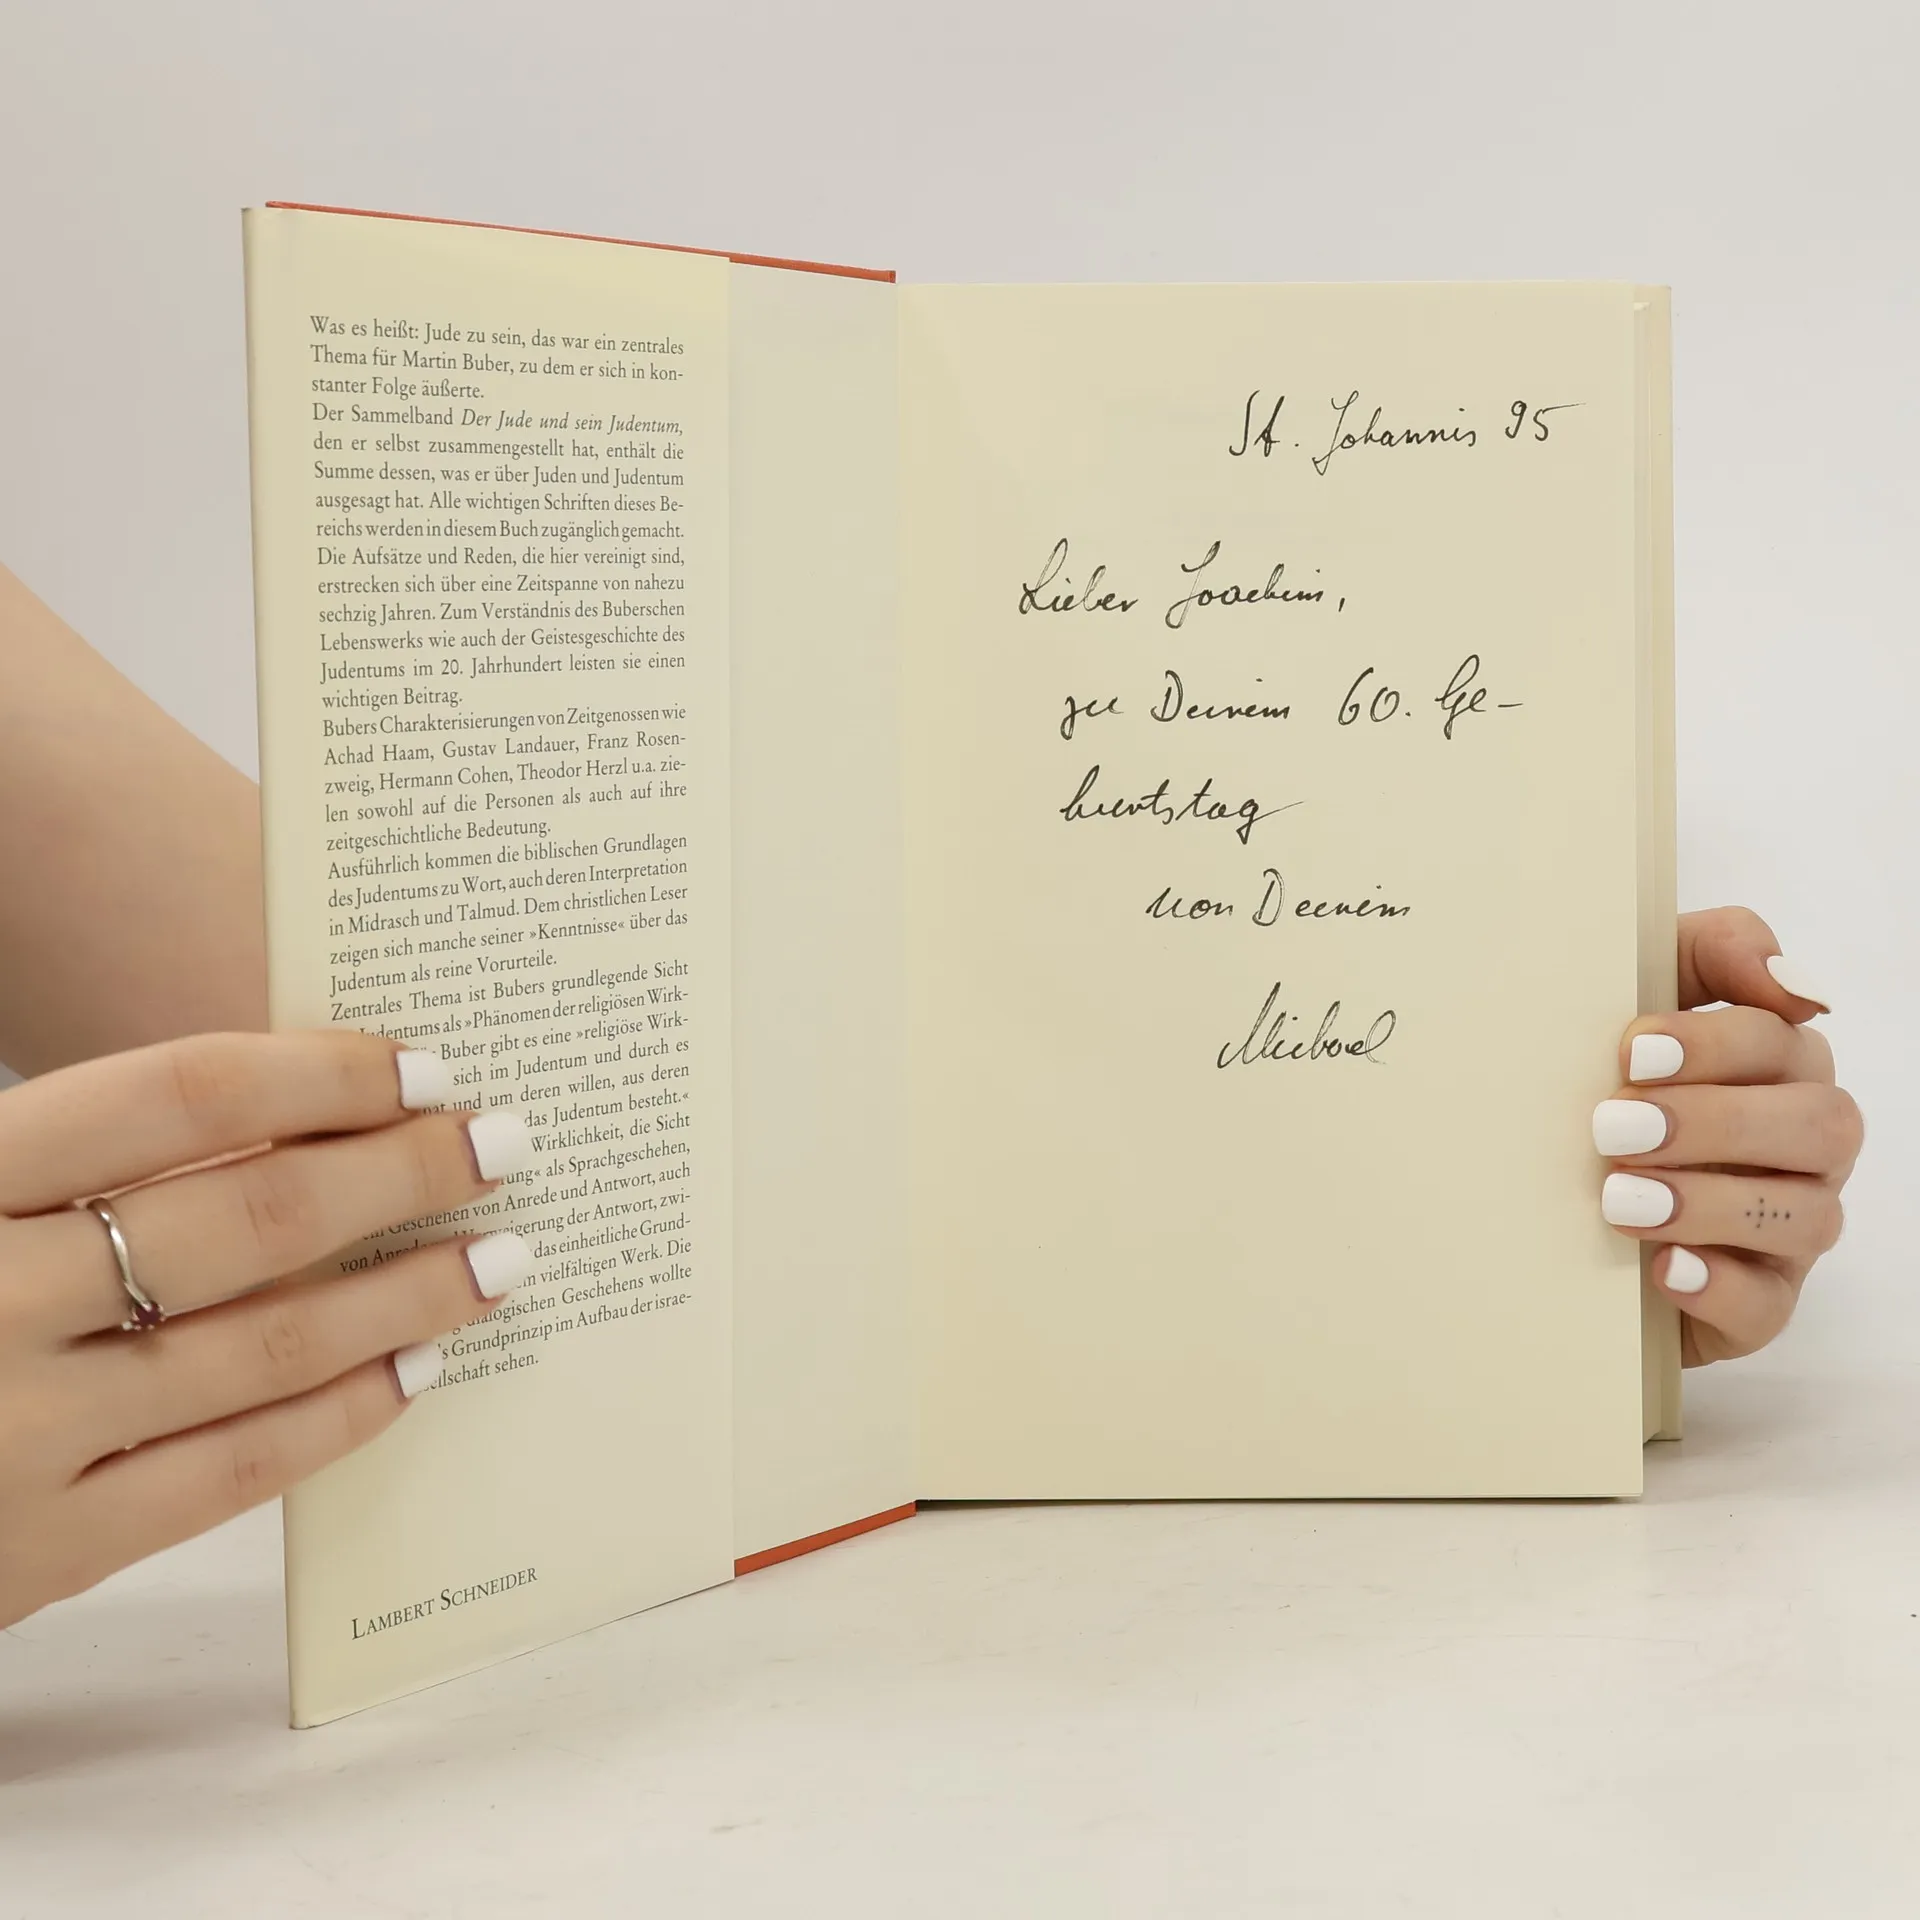 Was es heißt: Jude zu sein, das war ein zentrales
Thema für Martin Buber, zu dem er sich in kon-
stanter Folge äußerte.
Der Sammelband Der Jude und sein Judentum,
den er selbst zusammengestellt hat, enthält die
Summe dessen, was er über Juden und Judentum
ausgesagt hat. Alle wichtigen Schriften dieses Be-
reichs werden in diesem Buch zugänglich gemacht.
Die Aufsätze und Reden, die hier vereinigt sind,
erstrecken sich über eine Zeitspanne von nahezu
sechzig Jahren. Zum Verständnis des Buberschen
Lebenswerks wie auch der Geistesgeschichte des
Judentums im 20. Jahrhundert leisten sie einen
wichtigen Beitrag.
Bubers Charakterisierungen von Zeitgenossen wie
Achad Haam, Gustav Landauer, Franz Rosen-
zweig, Hermann Cohen, Theodor Herzl u.a. zie-
len sowohl auf die Personen als auch auf ihre
zeitgeschichtliche Bedeutung.
Ausführlich kommen die biblischen Grundlagen
des Judentums zu Wort, auch deren Interpretation
in Midrasch und Talmud. Dem christlichen Leser
zeigen sich manche seiner »Kenntnisse« über das
Judentum als reine Vorurteile.
Zentrales Thema ist Bubers grundlegende Sicht
als »Phänomen der religiösen Wirk-
Buber gibt es eine »religiöse Wirk-
sich im Judentum und durch es
und um deren willen, aus deren
das Judentum besteht.«
Wirklichkeit, die Sicht
als Sprachgeschehen,
Geschehen von Anrede und Antwort, auch
von der Antwort, zwi-
das einheitliche Grund-
vielfältigen Werk. Die
Geschehens wollte
Grundprinzip im Aufbau der israe-
sehen.
LAMBERT SCHNEIDER
St. Johannis 95
Lieber Joachim,
zu Deinem 60. Ge-
burtstag
von Deinem
Michael